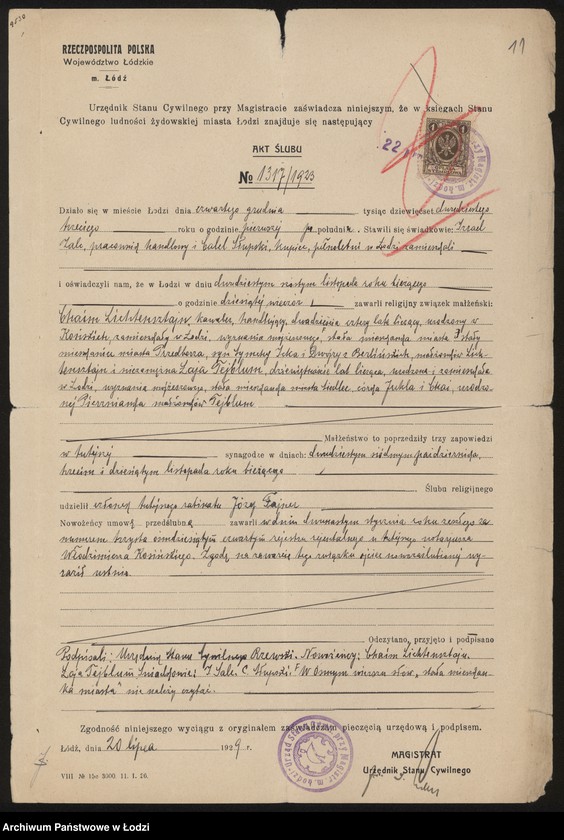 9530
11
RZECZPOSPOLITA POLSKA
Województwo Łódzkie
m. Łódź
Urzędnik Stanu Cywilnego przy Magistracie zaświadcza niniejszym, że w księgach Stanu
Cywilnego ludności żydowskiej miasta Łodzi znajduje się następujący
AKT ŚLUBU
№ 1317/1923
22
1
Działo się w mieście Łodzi dnia czwartego grudnia tysiąc dziewięćset dwudziestego
trzeciego roku o godzinie pierwszej po południu. Stawili się świadkowie: Izrael
Sale, pracownik handlowy i Calel Słupski, kupiec, pełnoletni w Łodzi zamieszkali
i oświadczyli nam, że w Łodzi w dniu dwudziestym szóstym listopada roku bieżącego
o godzinie dziesiątej wieczór zawarli religijny związek małżeński:
Chaim Lichtensztajn, kawaler, handlujący, dwadzieścia cztery lat liczący, urodzony w
Końskich, zamieszkały w Łodzi, wyznania mojżeszowego, stały mieszkaniec miasta stały
mieszkaniec miasta Przedborza, syn Szymchy Icka i z Berlińskich, małżonków Lich-
tensztajn i niezamężna Łaja Tejblum, dziewiętnaście lat licząca, urodzona i zamieszkała
w Łodzi, wyznania mojżeszowego, stała mieszkanka miasta Siedlec, córka Jukla i Chai, urodzo-
nej małżonków Tejblum.
Małżeństwo to poprzedziły trzy zapowiedzi
w tutejszej synagodze w dniach: dwudziestym siódmym października,
trzecim i dziesiątym listopada roku bieżącego
Ślubu religijnego
udzielił członek tutejszego rabinatu Józef Fajner
Nowożeńcy umowę przedślubną zawarli w dniu dwunastym stycznia roku zeszłego za
numerem trzysta osiemdziesiątym czwartym rejestru rejentalnego u tutejszego notarjusza
Włodzimierza Kosińskiego. Zgodę na zawarcie tego związku ojciec nowozaślubionej wy-
raził ustnie.
Odczytano, przyjęto i podpisano
Podpisali: Urzędnik Stanu Cywilnego Rzewski. Nowożeńcy: Chaim Lichtensztajn.
Łaja Tejblum. Świadkowie: I Sale. C. Słupski. W ósmym wierszu słów "stała mieszkan-
ka miasta" nie należy czytać.
Zgodność niniejszego wyciągu z oryginałem zaświadczam pieczęcią urzędową i podpisem.
Łódź, dnia 20 lipca 1929 r.
MAGISTRAT
Urzędnik Stanu Cywilnego
VIII № 15c 3000. 11. 1. 26.
Archiwum Państwowe w Łodzi